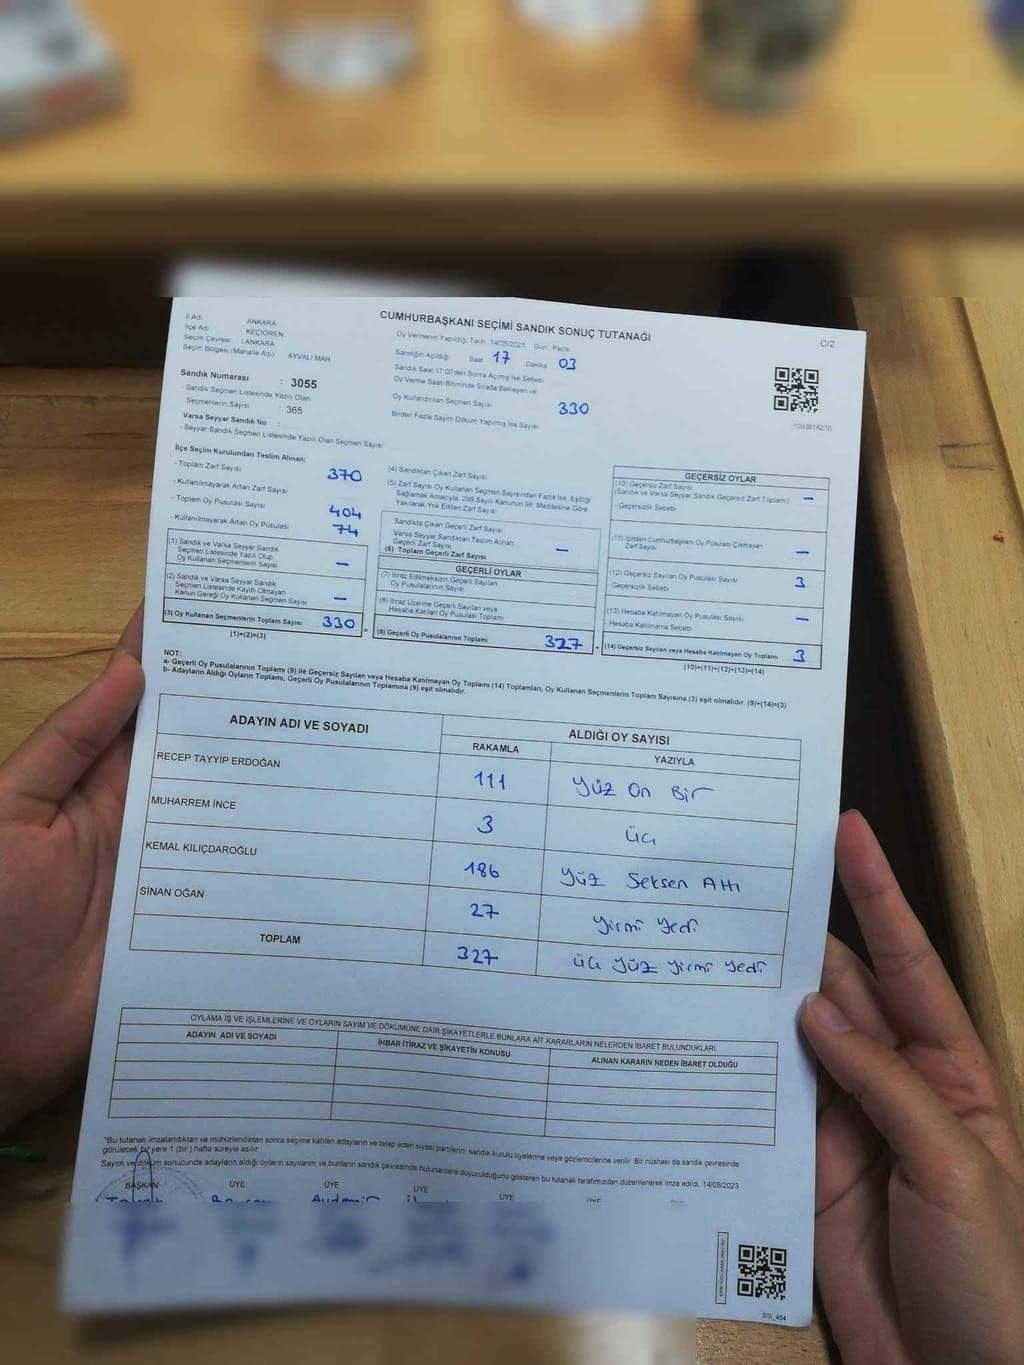 CUMHURBAŞKANI SEÇİMİ SANDIK SONUÇ TUTANAĞI
C/2
İl Adı ANKARA
İlçe Adı KEÇİÖREN
Seçim Çevresi : ANKARA
Seçim Bölgesi (Mahalle Adı) AYVALI MAH
Oy Vermenin Yapıldığı Tarih 14/05/2023 Gün Pazar
Sandığın Açıldığı Saat 17 Dakika 03
Sandık Saat 17 00'den Sonra Açılmış İse Sebebi
Oy Verme Saati Bitiminde Sırada Bekleyen ve
Oy Kullandırılan Seçmen Sayısı 330
Birden Fazla Sayım Döküm Yapılmış İse Sayısı
Sandık Numarası : 3055
- Sandık Seçmen Listesinde Yazılı Olan
Seçmenlerin Sayısı : 365
Varsa Seyyar Sandık No :
- Seyyar Sandık Seçmen Listesinde Yazılı Olan Seçmen Sayısı
İlçe Seçim Kurulundan Teslim Alınan:
- Toplam Zarf Sayısı 370
- Kullanılmayarak Artan Zarf Sayısı
- Toplam Oy Pusulası Sayısı 404
- Kullanılmayarak Artan Oy Pusulası 74
(1) Sandık ve Varsa Seyyar Sandık
Seçmen Listesinde Yazılı Olup
Oy Kullanan Seçmenlerin Sayısı —
(2) Sandık ve Varsa Seyyar Sandık
Seçmen Listesinde Kayıtlı Olmayan
Kanun Gereği Oy Kullanan Seçmen Sayısı —
(3) Oy Kullanan Seçmenlerin Toplam Sayısı 330
(1)+(2)=(3)
(4) Sandıktan Çıkan Zarf Sayısı
(5) Zarf Sayısı Oy Kullanan Seçmen Sayısından Fazla İse Eşitliği
Sağlamak Amacıyla; 298 Sayılı Kanunun 98. Maddesine Göre
Yakılarak Yok Edilen Zarf Sayısı
Sandıkta Çıkan Geçerli Zarf Sayısı
Varsa Seyyar Sandıktan Teslim Alınan
Geçerli Zarf Sayısı —
(6) Toplam Geçerli Zarf Sayısı
GEÇERLİ OYLAR
(7) İtiraz Edilmeksizin Geçerli Sayılan
Oy Pusulalarının Sayısı
(8) İtiraz Üzerine Geçerli Sayılan veya
Hesaba Katılan Oy Pusulası Toplamı
(9) Geçerli Oy Pusulalarının Toplamı 327
GEÇERSİZ OYLAR
(10) Geçersiz Zarf Sayısı
(Sandık ve Varsa Seyyar Sandık Geçersiz Zarf Toplamı) —
- Geçersizlik Sebebi
(11) İçinden Cumhurbaşkanı Oy Pusulası Çıkmayan
Zarf Sayısı —
(12) Geçersiz Sayılan Oy Pusulası Sayısı 3
- Geçersizlik Sebebi
(13) Hesaba Katılmayan Oy Pusulası Sayısı —
- Hesaba Katılmama Sebebi
(14) Geçersiz Sayılan veya Hesaba Katılmayan Oy Toplamı 3
(10)+(11)+(12)+(13)=(14)
NOT:
a- Geçerli Oy Pusulalarının Toplamı (9) ile Geçersiz Sayılan veya Hesaba Katılmayan Oy Toplamı (14) Toplamları, Oy Kullanan Seçmenlerin Toplam Sayısına (3) eşit olmalıdır. (9)+(14)=(3)
b- Adayların Aldığı Oyların Toplamı, Geçerli Oy Pusulalarının Toplamına (9) eşit olmalıdır.
ADAYIN ADI VE SOYADI ALDIĞI OY SAYISI
RAKAMLA YAZIYLA
RECEP TAYYİP ERDOĞAN 111 Yüz On Bir
MUHARREM İNCE 3 Üç
KEMAL KILIÇDAROĞLU 186 Yüz Seksen Altı
SİNAN OĞAN 27 Yirmi Yedi
TOPLAM 327 Üç Yüz Yirmi Yedi
OYLAMA İŞ VE İŞLEMLERİNE VE OYLARIN SAYIM VE DÖKÜMÜNE DAİR ŞİKAYETLERLE BUNLARA AİT KARARLARIN NELERDEN İBARET BULUNDUKLARI
ADAYIN ADI VE SOYADI İHBAR İTİRAZ VE ŞİKAYETİN KONUSU ALINAN KARARIN NEDEN İBARET OLDUĞU
"Bu tutanak imzalandıktan ve mühürlendikten sonra seçime katılan adayların ve talep eden siyasi partilerin sandık kurulu üyelerine veya gözlemcilerine verilir. Bir nüshası da sandık çevresinde
görülecek bir yere 1 (bir) hafta süreyle asılır
Sayım ve döküm sonucunda adayların aldığı oyların sayılarını ve bunların sandık çevresinde bulunanlara duyurulduğunu gösteren bu tutanak tarafımızdan düzenlenerek imza edildi. 14/05/2023
BAŞKAN ÜYE ÜYE ÜYE ÜYE ÜYE
Aydemir
SSI_404